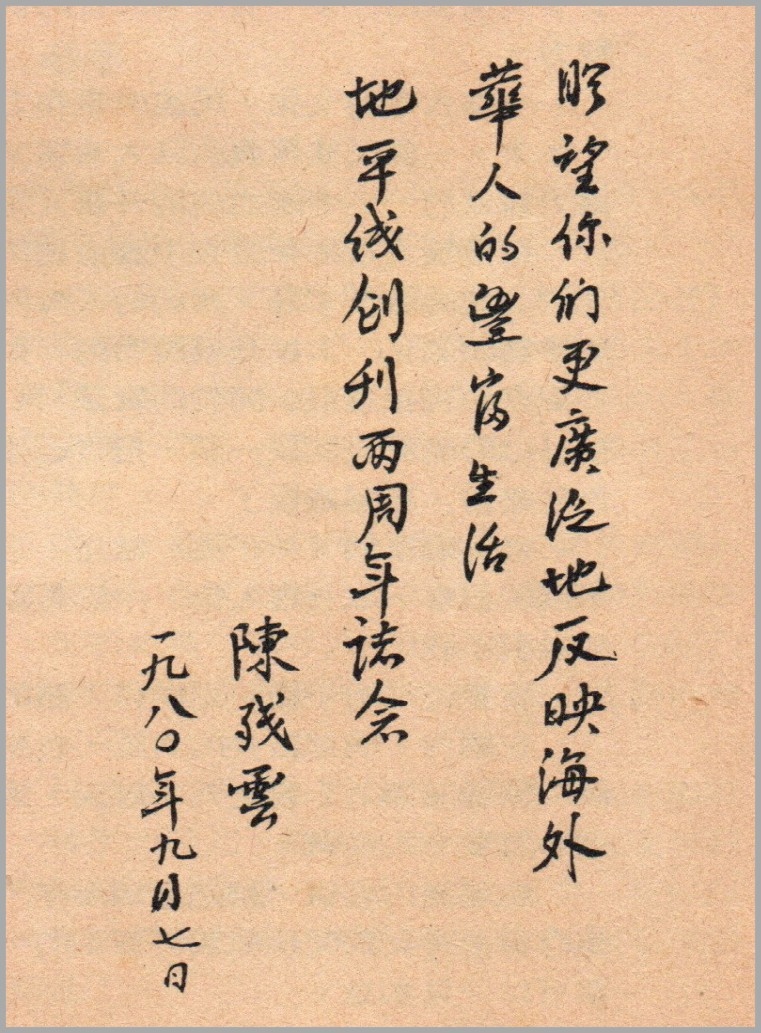 盼望你们更廣泛地反映海外
華人的豐富生活
地平线创刊两周年誌念
陳残雲
一九八〇年九月七日